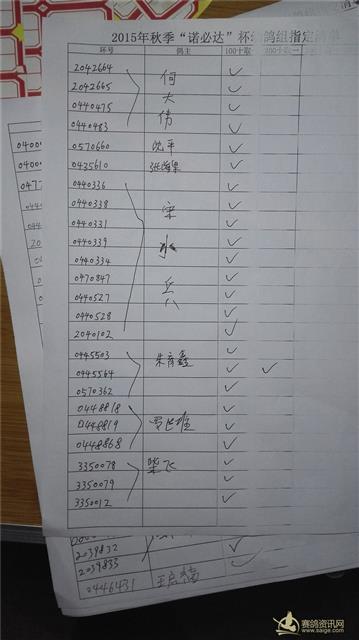 2015年秋季“诺必达”杯
鸽组指定清单
环号 鸽主 100十取
2042664
2042665
0440475
0440483
何大伟
0570660 沈平
0435610
0440336
0440338
0440331
0440339
0440334
0470847
0440527
0440528
2040102
宋水兵
0445503
0445564
0570362
朱育鑫
0448818
0448819
0448868
3350078
3350079
3350012
柴飞
2039832
2039833
0446431
赛鸽资讯网
www.saige.com